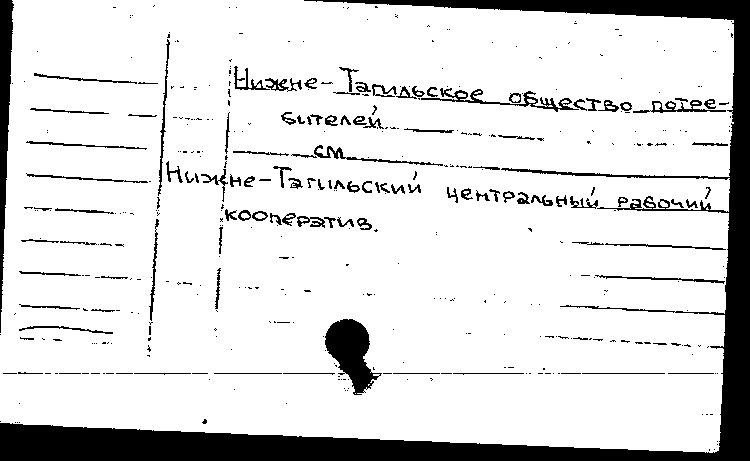 Нижне-Тагильское общество потре-
бителей
см.
Нижне-Тагильский центральный рабочий
кооператив.